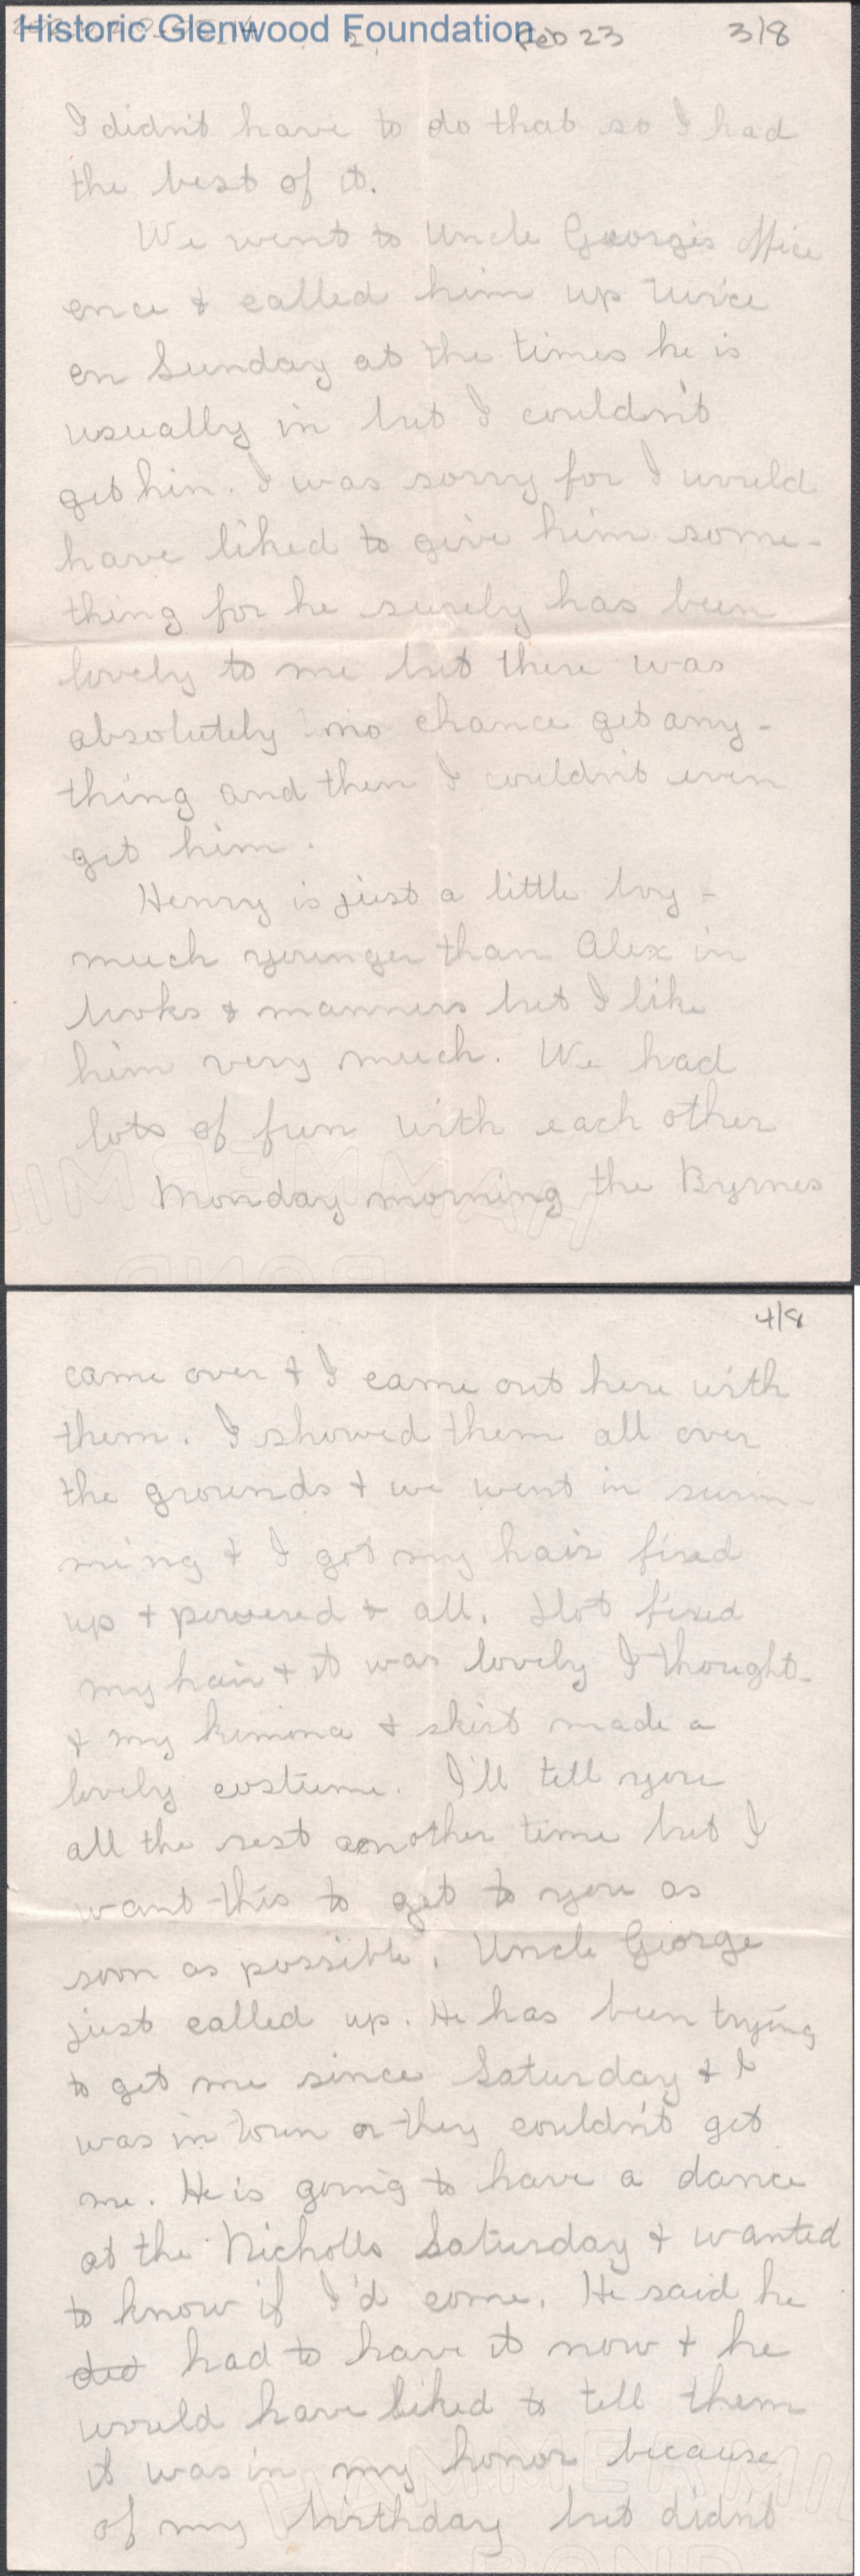 Historic Glenwood Foundation
2, Feb 23 3/8
I didn't have to do that so I had
the best of it.
We went to Uncle George's office
once & called him up twice
on Sunday at the times he is
usually in but I couldn't
get him. I was sorry for I would
have liked to give him some-
thing for he surely has been
lovely to me but there was
absolutely no chance get any-
thing and then I couldn't even
get him.
Henry is just a little boy -
much younger than Alex in
looks & manners but I like
him very much. We had
lots of fun with each other
Monday morning the Byrnes
HAMMERMILL
BOND
4/8
came over & I came out here with
them. I showed them all over
the grounds & we went in swim-
ming & I got my hair fixed
up & powered & all. Dot fixed
my hair & it was lovely I thought
& my kimona & skirt made a
lovely costume. I'll tell you
all the rest another time but I
want this to get to you as
soon as possible. Uncle George
just called up. He has been trying
to get me since Saturday & I
was in town or they couldn't get
me. He is going to have a dance
at the Nicholls Saturday & wanted
to know if I'd come. He said he
did had to have it now & he
would have liked to tell them
it was in my honor because
of my birthday but didn't
HAMMERMILL
BOND